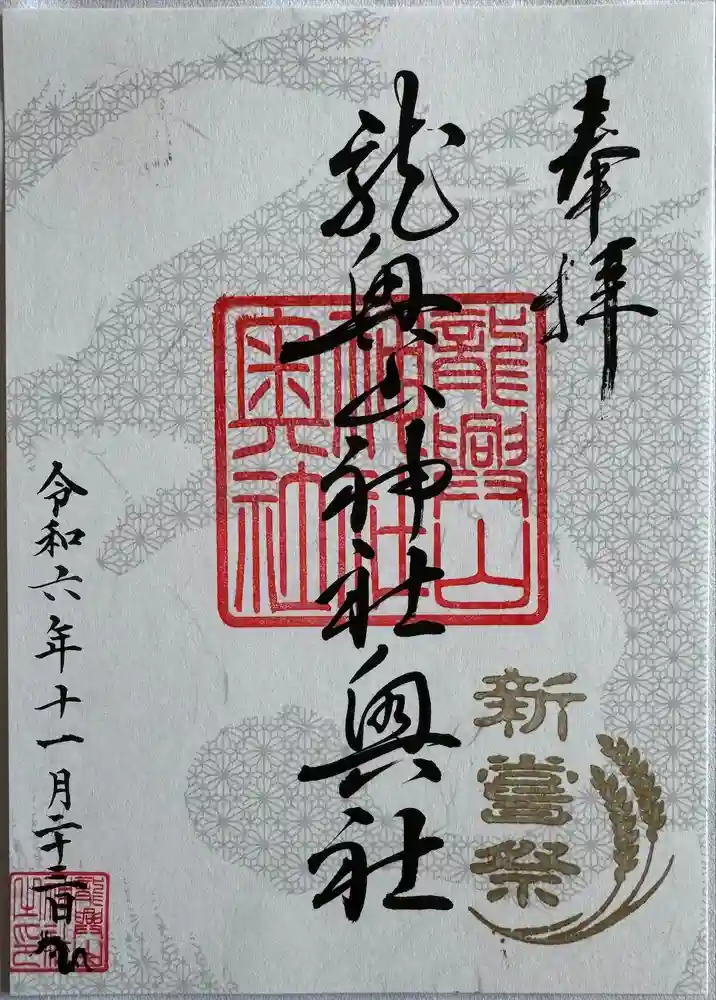 奉拝
龍興山神社奥社
龍興山
神社
奥社
新嘗祭
令和六年十一月二十三日